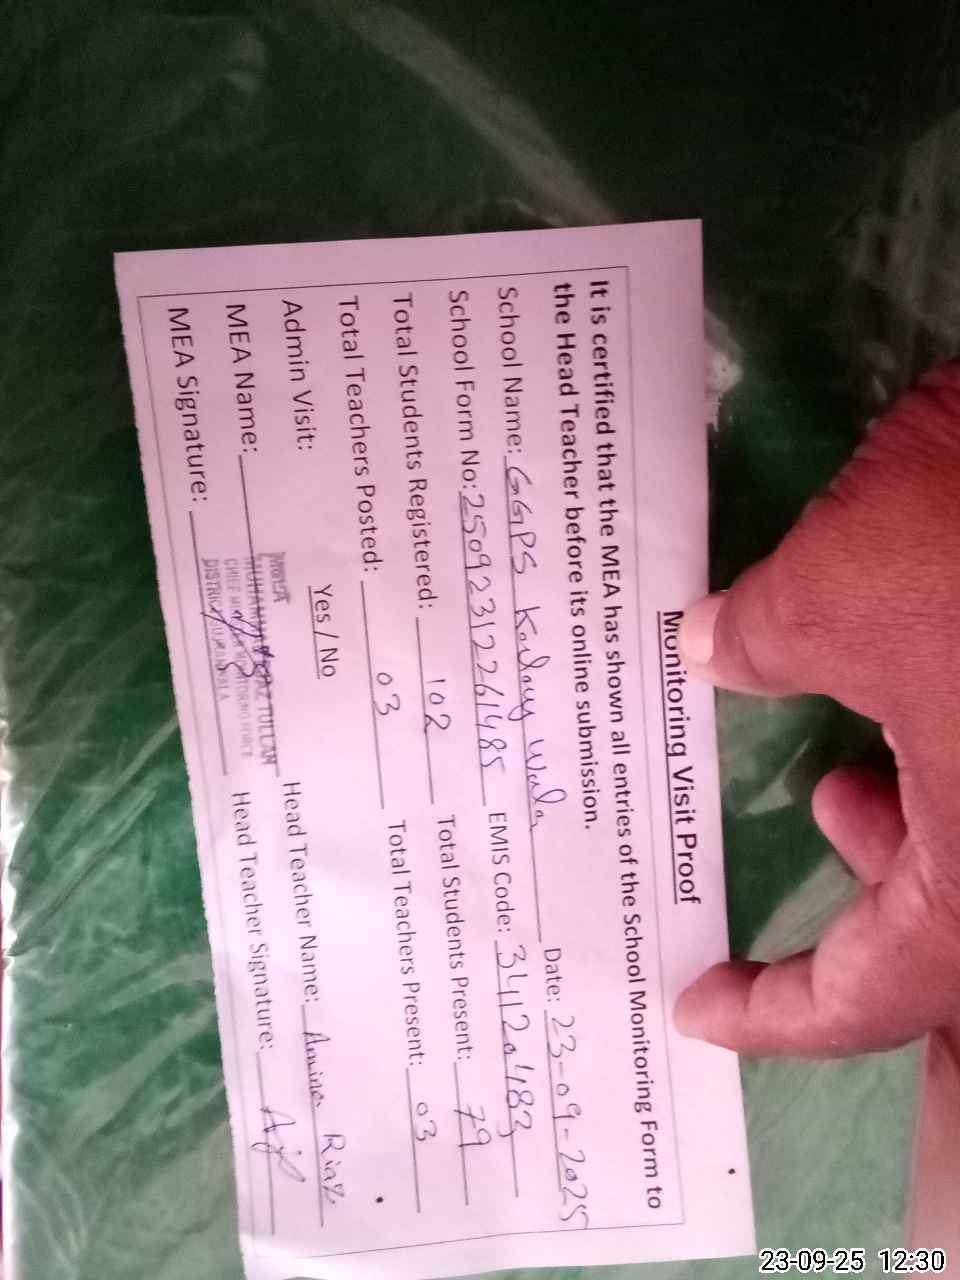 Monitoring Visit Proof
It is certified that the MEA has shown all entries of the School Monitoring Form to
the Head Teacher before its online submission.
School Name: GGPS Date: 23-09-2025
School Form No: 25092312261485 EMIS Code: 34120183
Total Students Registered: 102 Total Students Present: 79
Total Teachers Posted: 03 Total Teachers Present: 03
Admin Visit: Yes / No
MEA Name: Head Teacher Name: Amina Riaz
MEA Signature: Head Teacher Signature:
23-09-25 12:30